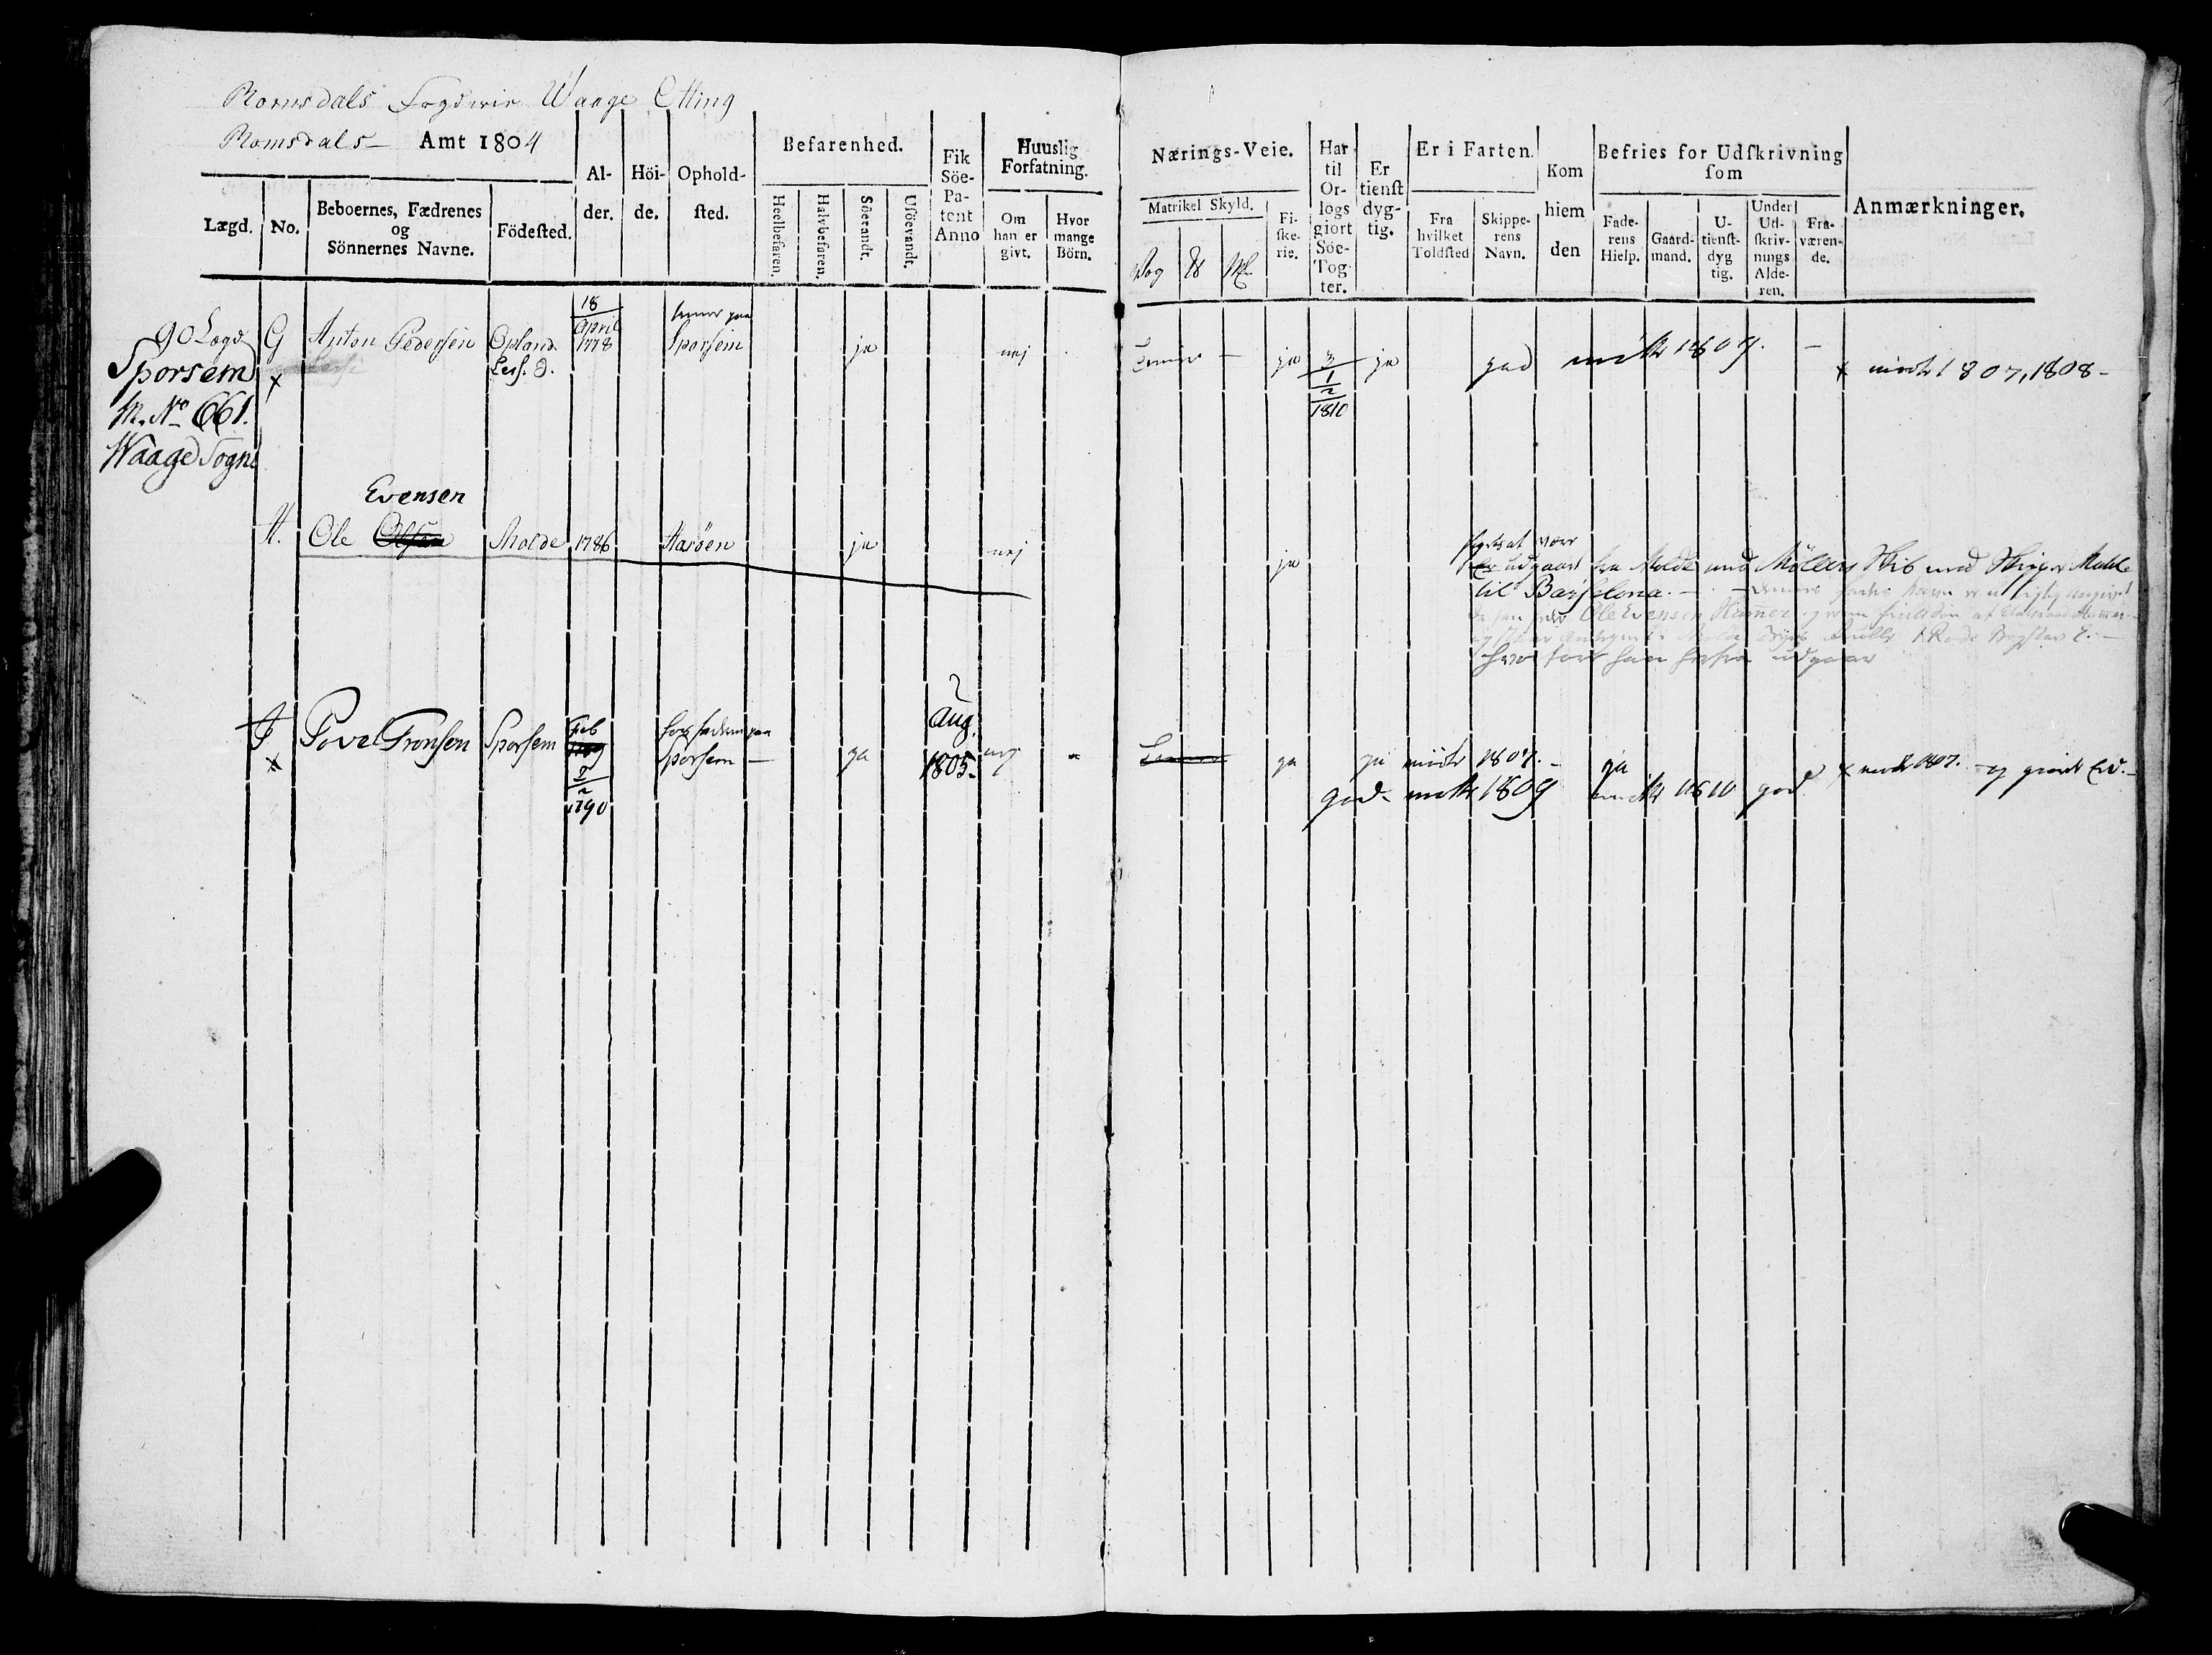 Romsdals Fogderie Waage Otting
Romsdals Amt 1804
Lægd.
No.
Beboernes, Fædrenes
og
Sönnernes Navne.
Födeſted.
Al-
der.
Höi-
de.
Ophold-
ſted.
Befarenhed.
Heelbefaren.
Halvbefaren.
Söevandt.
Uſöevandt.
Fik
Söe-
Pa-
tent
Anno
Huuslig
Forfatning.
Om
han er
givt.
Hvor
mange
Börn.
Nærings-Veie.
Matrikel Skyld.
Vog
Fi-
ſke-
rie.
Har
til
Or-
logs
giort
Söe-
Tog-
ter.
Er
tienſt
dyg-
tig.
Er i Farten.
Fra
hvilket
Toldſted
Skippe-
rens
Navn.
Kom
hiem
den
Befries for Udſkrivning
ſom
Fade-
rens
Hielp.
Gaard-
mand.
U-
tienſt-
dyg
tig.
Under
Ud-
ſkriv-
nings
Alde-
ren.
Fra-
væren-
de.
Anmærkninger.
90 Lægd
Sporsem
M. No 661.
Waage Sogn
G Anton Pedersen Opland 18 April 1778 Sporsem ja nej
Less. D.
ja 3 ja god mött 1809. —
1/2 1810
x mödt 1807, 1808 -
Evensen
H. Ole Olsen Molde 1786 Haröen ja nej
ja
være
Er udgaaet fra Molde med Möllers Skib med Skipper
til Barselona. —
Ole Evensen Hammer
hvorfore han herfra udgaaer
I Povel Tronsen Sporsem Feb 1789 Sporsem — ja Aug. 1805. nej
x 2 1790
ja ja mödte 1807. - ja
god. mötte 1809 mött 1810 god
x mödt 1807. og giordt Ed. -